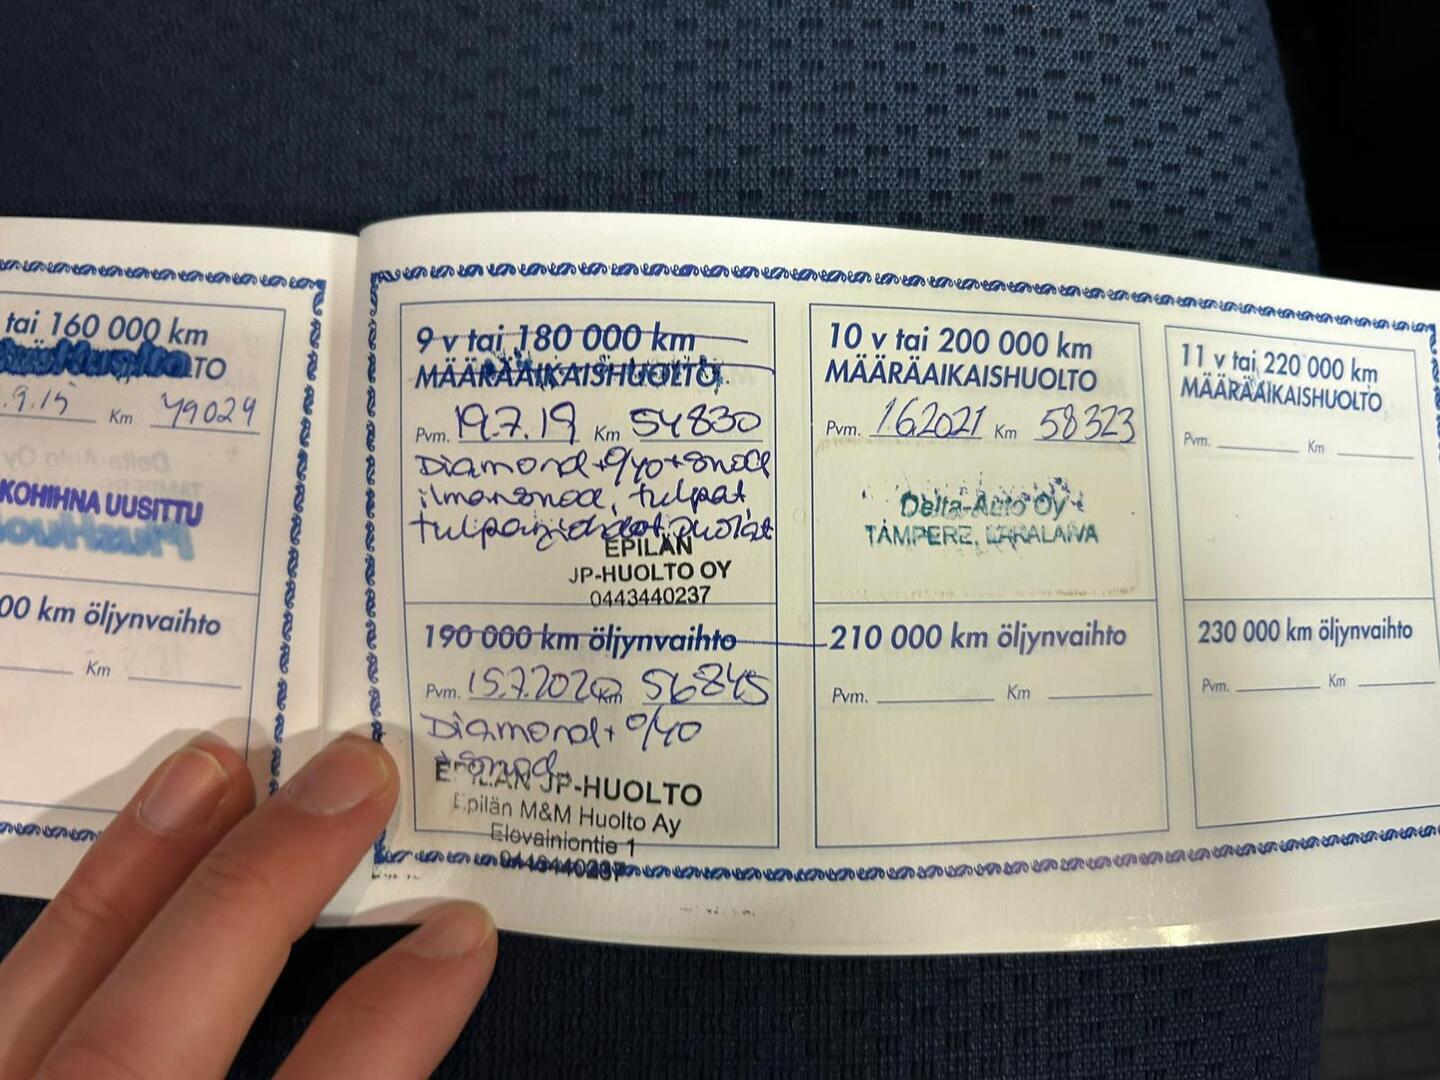 tai 160 000 km
LTO
.9.15 Km 49024
KOHIHNA UUSITTU
00 km öljynvaihto
Km
9 v tai 180 000 km
MÄÄRÄAIKAISHUOLTO
Pvm. 19.7.19 Km 54830
Diamond + 0/40 + snod
ilmansnod, tulpat
tulpanjohdot, puolat
EPILÄN
JP-HUOLTO OY
0443440237
190 000 km öljynvaihto
Pvm. 15.7.2020 Km 56845
Diamond + 0/40
+ snod.
EPILÄN JP-HUOLTO
Epilän M&M Huolto Ay
Elovainiontie 1
0443440237
10 v tai 200 000 km
MÄÄRÄAIKAISHUOLTO
Pvm. 1.6.2021 Km 58323
Delta-Auto Oy
TAMPERE, LAKALAIVA
210 000 km öljynvaihto
Pvm. Km
11 v tai 220 000 km
MÄÄRÄAIKAISHUOLTO
Pvm. Km
230 000 km öljynvaihto
Pvm. Km